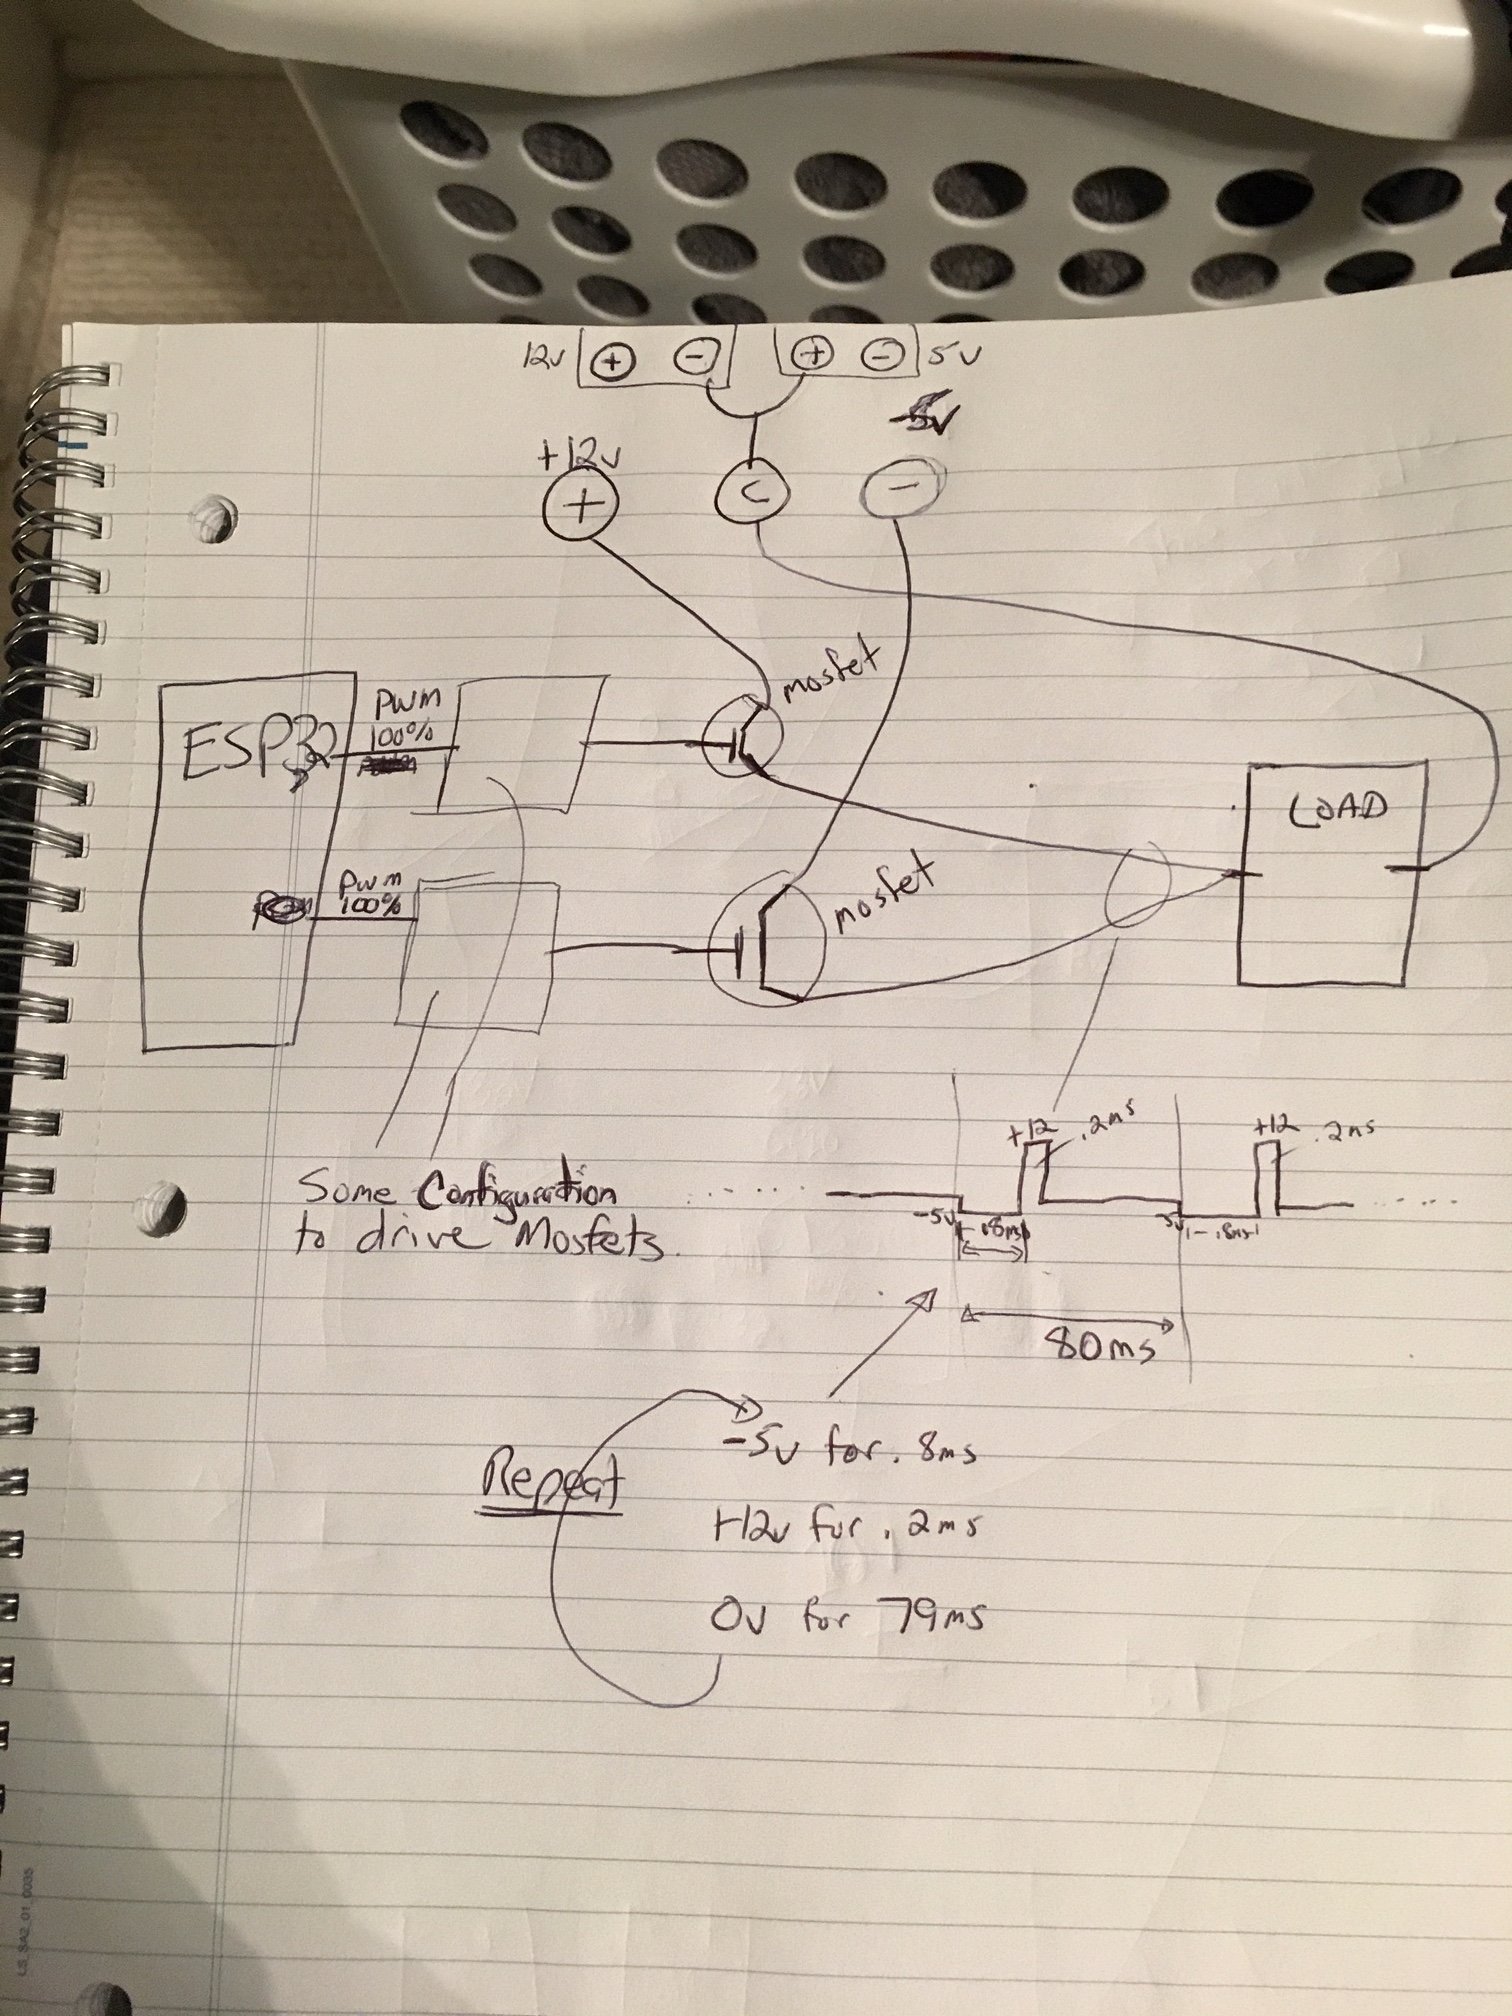 12v + - + - 5v
-5v
+12v
+ C -
mosfet
PWM
100%
ESP32
LOAD
PWM
100%
mosfet
+12 .2ms +12 .2ms
Some Configuration
to drive Mosfets.
-5v .8ms 5v .8ms
80ms
-5v for .8ms
Repeat
+12v for .2ms
0v for 79ms
LS_SA2_01_0035